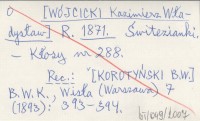 [WÓJCICKI Kazimierz Wła-
dysław] R. 1871. Świtezianki,
— Kłosy nr 288.
Rec.: [KOROTYŃSKI B.W.]
B.W.K., Wisła (Warszawa) 7
(1893): 393-394.